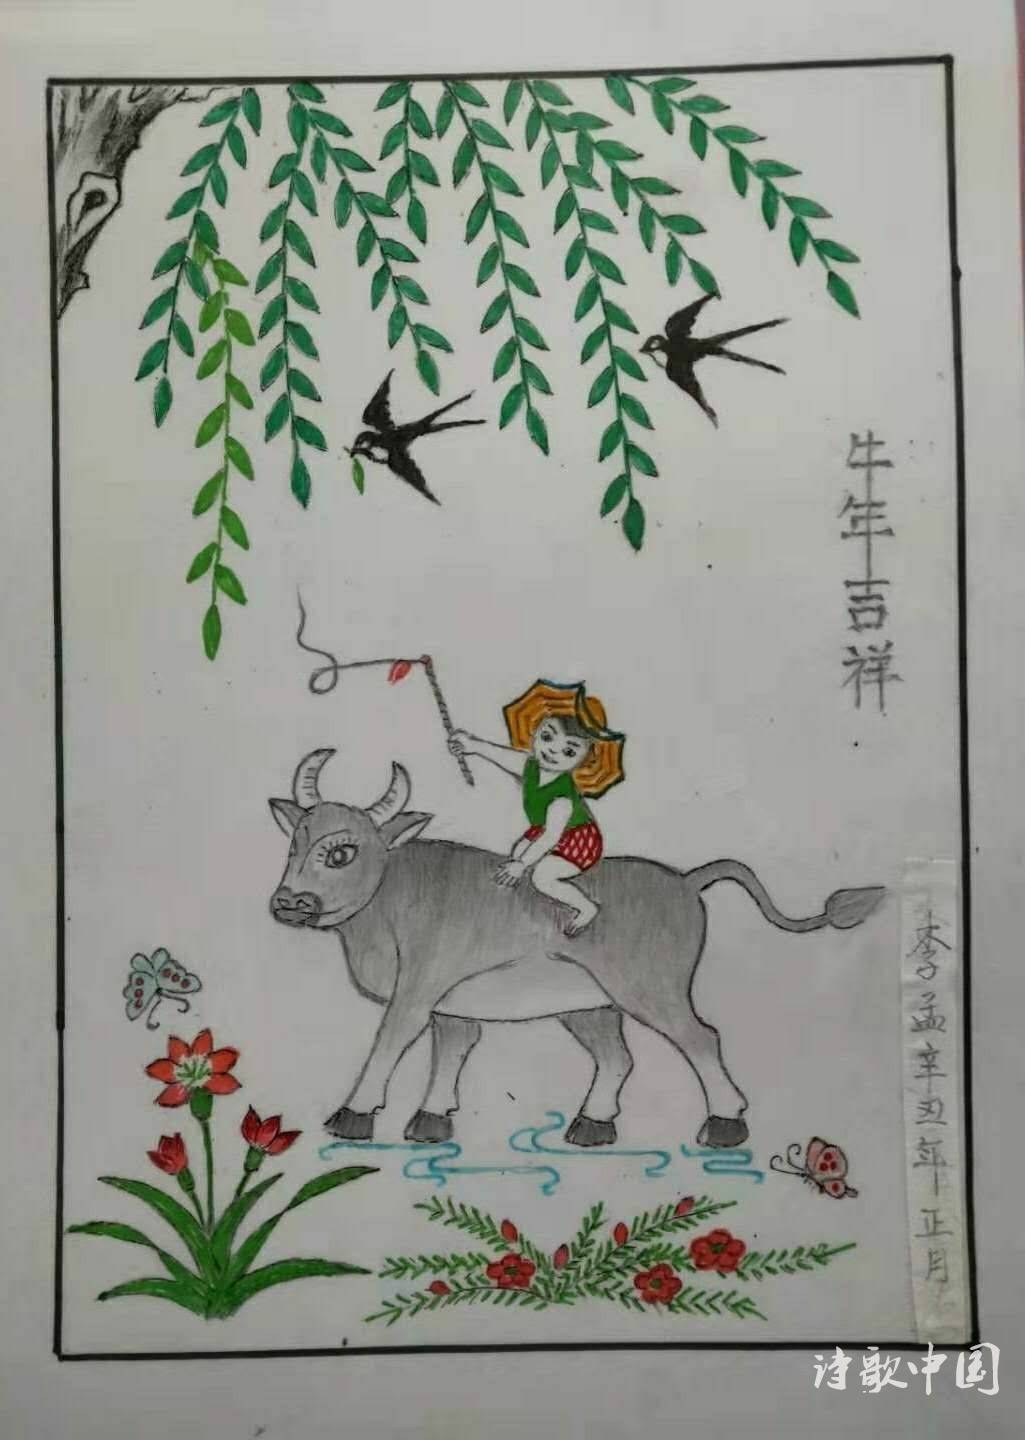 牛年吉祥
李孟辛丑年正月
诗歌中国